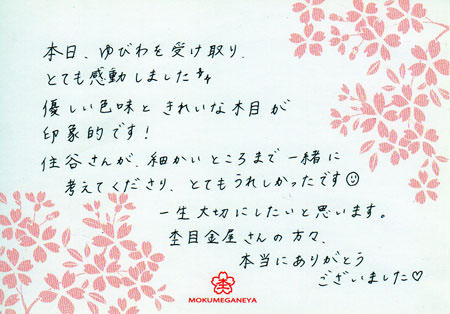 本日、ゆびわを受け取り、
とても感動しました
優しい色味ときれいな木目が
印象的です!
住谷さんが、細かいところまで一緒に
考えてくださり、とてもうれしかったです☺
一生大切にしたいと思います。
杢目金屋さんの方々、
本当にありがとう
ございました♡
MOKUMEGANEYA